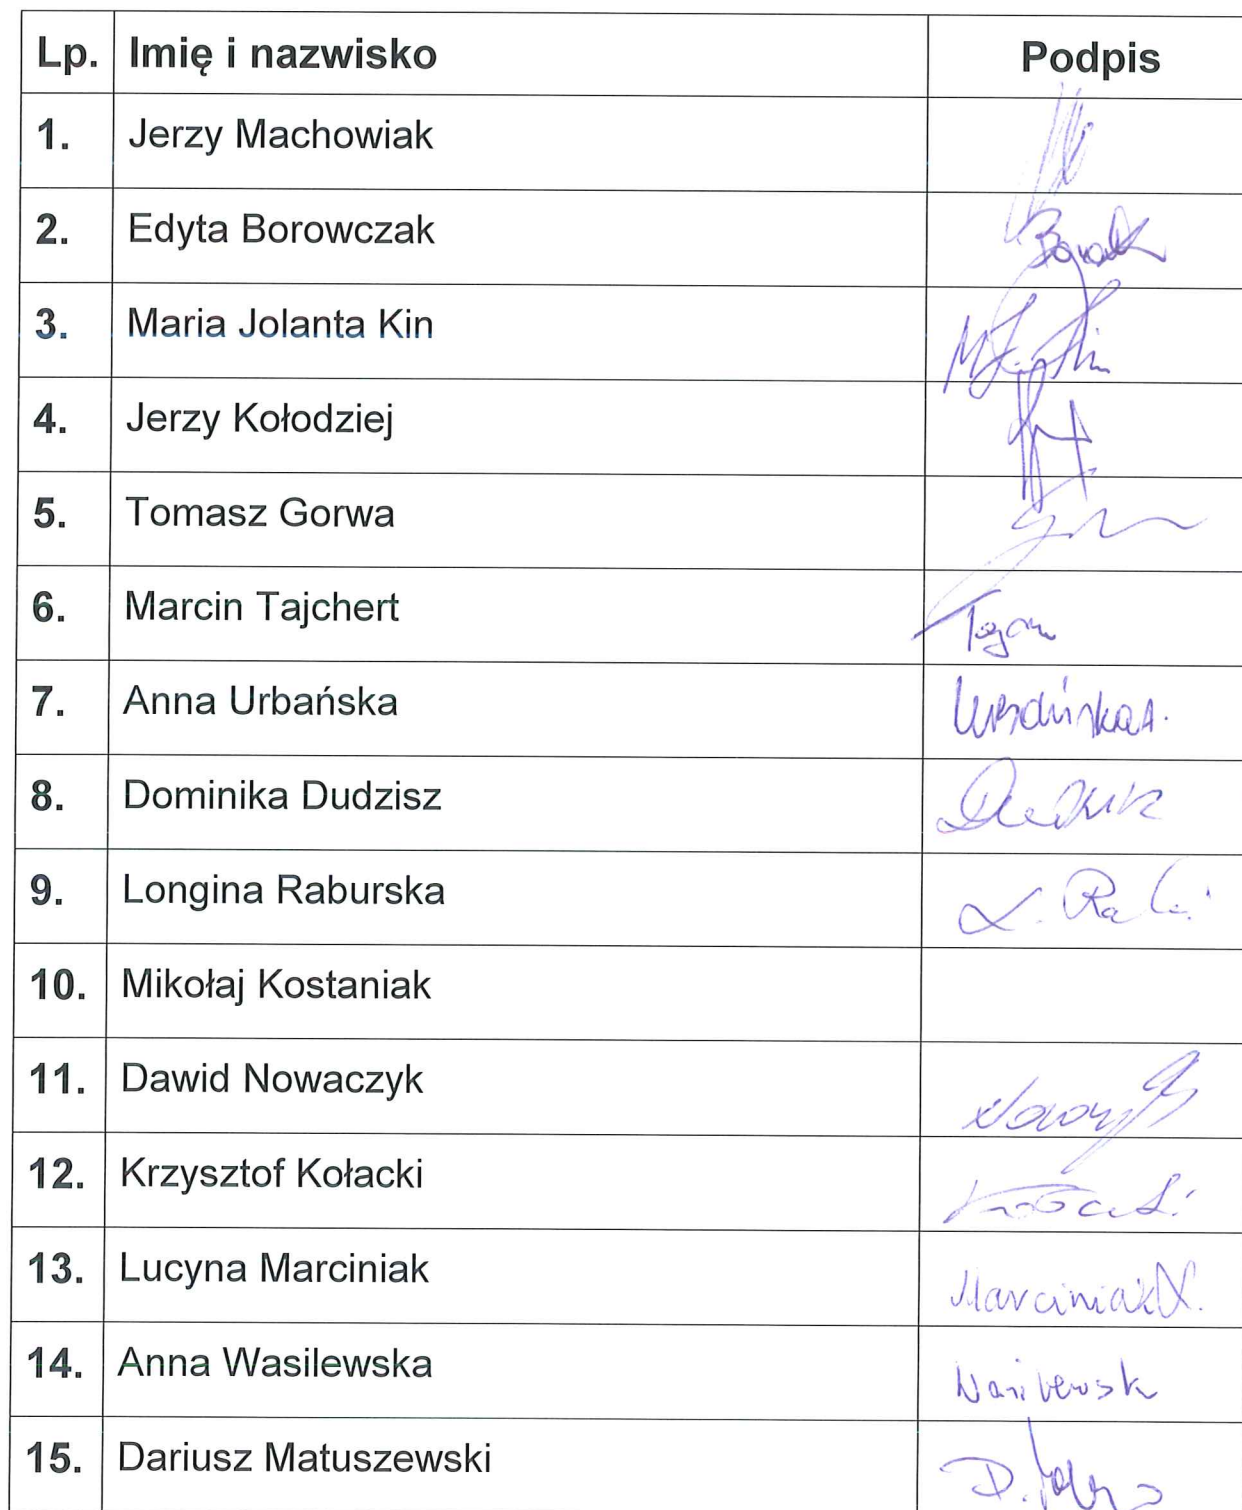 Lp. Imię i nazwisko Podpis
1. Jerzy Machowiak
2. Edyta Borowczak
3. Maria Jolanta Kin
4. Jerzy Kołodziej
5. Tomasz Gorwa
6. Marcin Tajchert
7. Anna Urbańska Urbańska A.
8. Dominika Dudzisz
9. Longina Raburska
10. Mikołaj Kostaniak
11. Dawid Nowaczyk
12. Krzysztof Kołacki
13. Lucyna Marciniak Marciniak L.
14. Anna Wasilewska
15. Dariusz Matuszewski